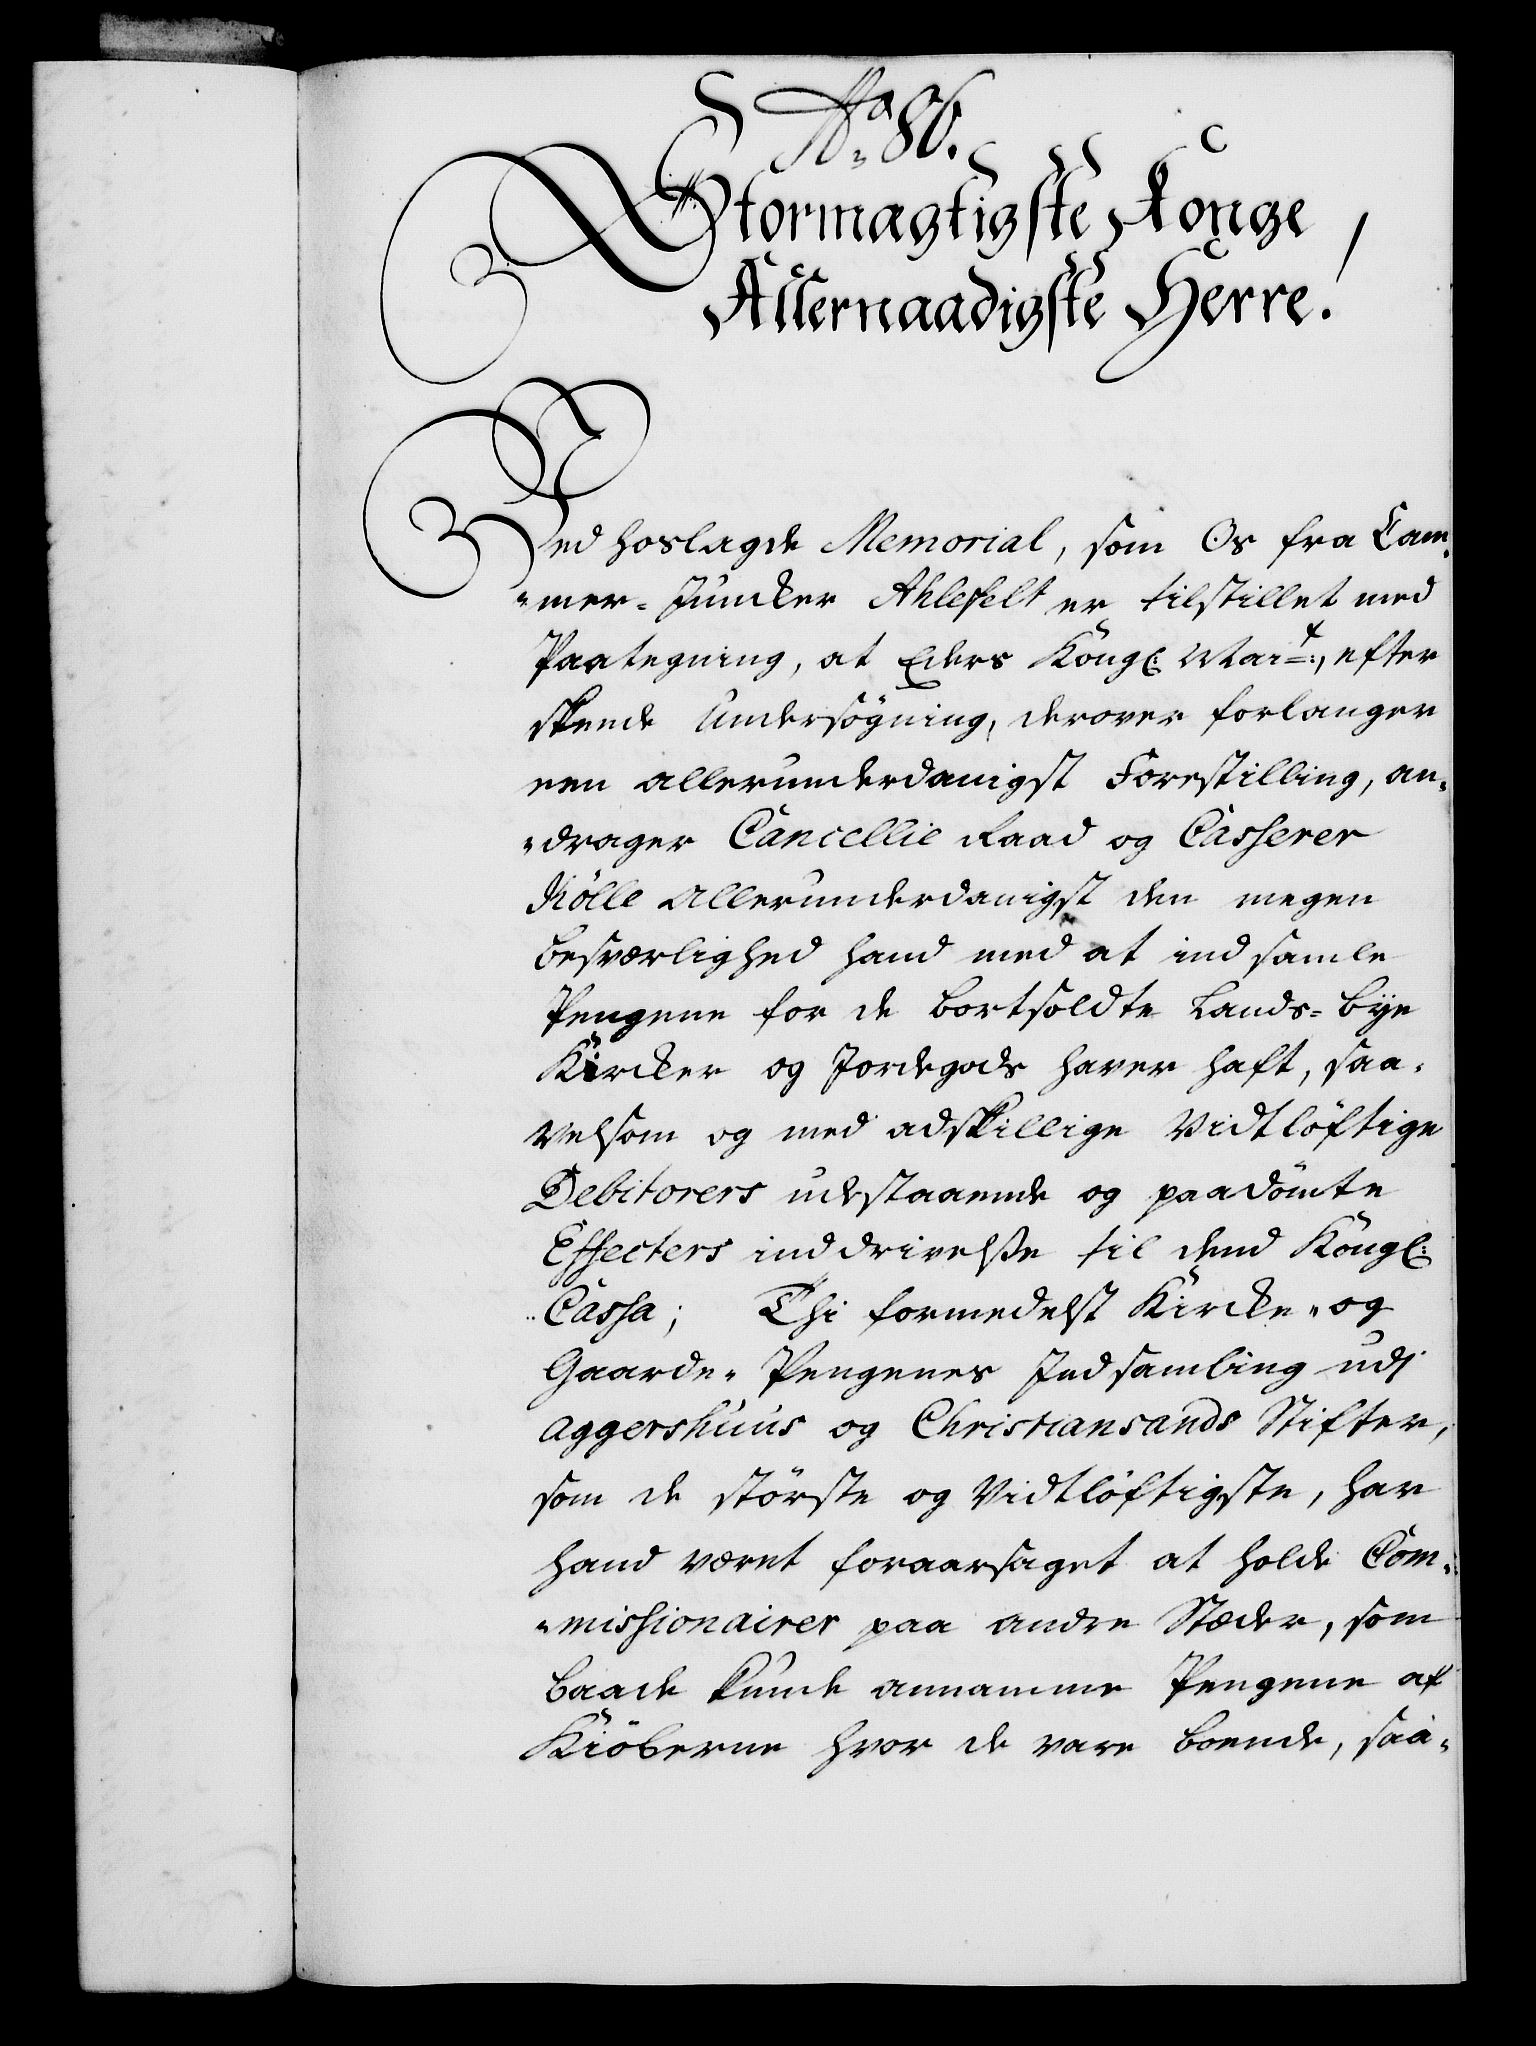 No 86.
Stormagtigste Konge
Allernaadigste Herre!
Ved hoslagde Memorial, som Os fra Cam-
-mer-Juncker Ahlefelt er tilstillet med
Paategning, at Eders Kongl: Mait:, efter
skeende Undersøgning, derover forlanger
een allerunderdanigst Forestilling, an-
-drager Cancellie Raad og Casserer
Kølle allerunderdanigst den megen
besværlighed hand med at indsamle
Pengene for de bortsoldte Lands-bye
Kircker og Jordegods haver haft, saa-
velsom og med adskillige Vidtløftige
Debitorers udestaaende og paadømte
Effecters inddrivelse til dend Kongl:
Cassa; Thi formedelst Kircke- og
Gaarde-Pengenes Indsamling udj
Aggershuus og Christiansands Stifter,
som de største og Vidtløftigste, har
hand været foraarsaget at holde Com-
-missionairer paa andre Stæder, som
baade kunde annamme Pengene af
Kiøberne hvor de vare boende, saa-